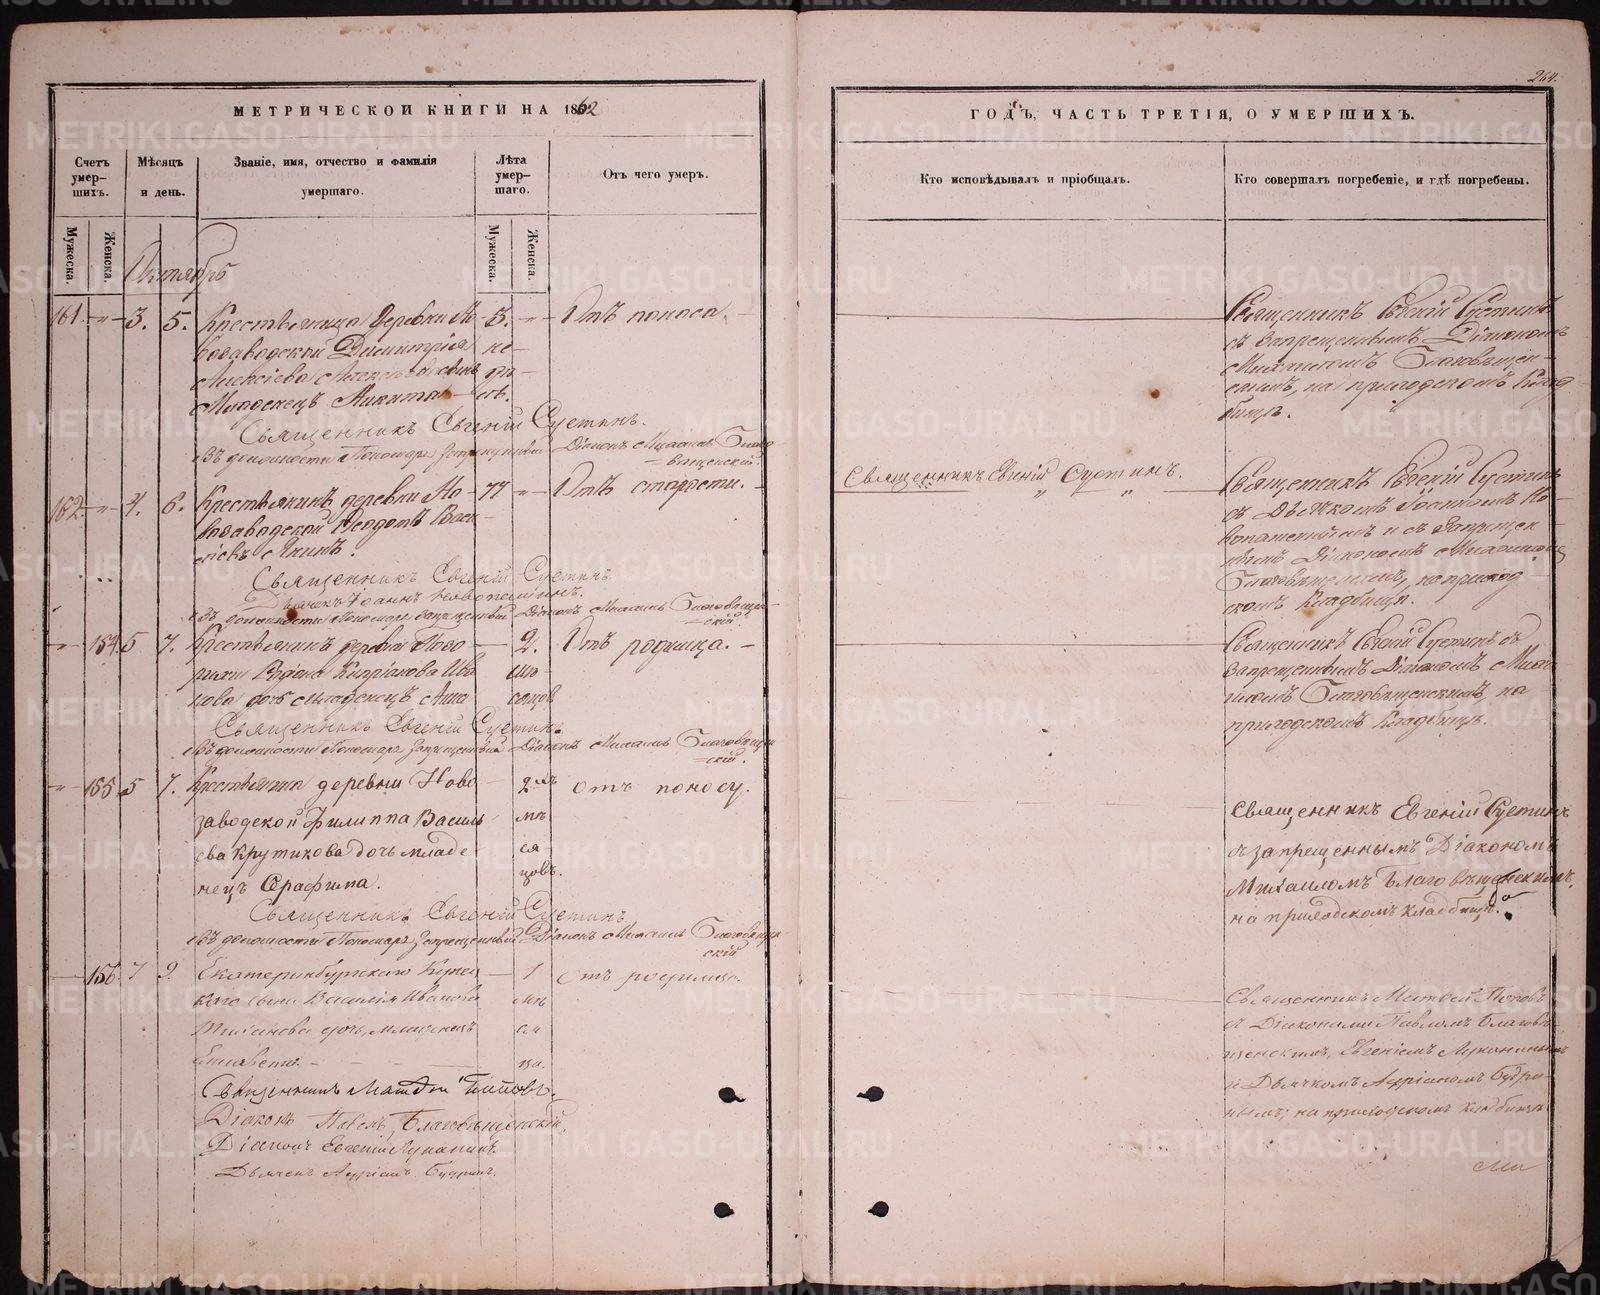 264.
МЕТРИЧЕСКОЙ КНИГИ НА 1862
ГОДЪ, ЧАСТЬ ТРЕТІЯ, О УМЕРШИХЪ.
Счетъ умер-шихъ.
Мѣсяцъ и день.
Званіе, имя, отчество и фамилія умершаго.
Лѣта умер-шаго.
Отъ чего умеръ.
Кто исповѣдывалъ и пріобщалъ.
Кто совершалъ погребеніе, и гдѣ погребены.
Мужеска.
Женска.
Мужеска.
Женска.
Октябрь
161. 3. 5. Крестьянина деревни Но- 3. Отъ поноса.
возаводской Димитрія не-
Алексіева сынъ дѣ-
Младенецъ Никита ли.
Священникъ Евгеній Сустинъ.
Въ должности Пономаря Запрещенный Діаконъ Михаилъ Благо-
вѣщенскій.
Священникъ Евгеній Сустинъ
съ запрещеннымъ Діакономъ
Михаиломъ Благовѣщен-
скимъ, на приходскомъ Клад-
бищѣ.
162. 4. 6. Крестьянинъ деревни Но- 77 Отъ старости.
возаводской Ѳеодотъ Васи-
ліевъ
Священникъ Евгеній Сустинъ
Дьячекъ Іоаннъ
Въ должности Пономаря Запрещенный Діаконъ Михаилъ Благовѣщен-
скій.
Священникъ Евгеній Сустинъ.
Священникъ Евгеній Сустинъ
съ Дьячкомъ Іоанномъ
и съ Запрещен-
нымъ Діакономъ Михаиломъ
Благовѣщенскимъ, на приход-
скомъ Кладбищѣ.
154. 5 7. Крестьянинъ деревни Ново- 2. Отъ родимца.
Кипріанова Ива-
нова дочь младенецъ Анна
Священникъ Евгеній Сустинъ.
Въ должности Пономаря Запрещенный Діаконъ Михаилъ Благовѣщен-
скій.
Священникъ Евгеній Сустинъ съ
запрещеннымъ Діакономъ Миха-
иломъ Благовѣщенскимъ, на
приходскомъ Кладбищѣ.
155. 5 7. Крестьянина деревни Ново- 2 отъ поносу.
заводской Филиппа Василь- мѣ
ева Крутикова дочь младе- ся
нецъ Серафима. цовъ.
Священникъ Евгеній Сустинъ
Въ должности Пономаря Запрещенный Діаконъ Михаилъ Благовѣщен-
скій
Священникъ Евгеній Сустинъ
съ запрещеннымъ Діакономъ
Михаиломъ Благовѣщенскимъ,
на приходскомъ кладбищѣ.
156. 7 9. Екатеринбургскаго Купе- 1 отъ родимца.
каго сына Василія Иванова мѣ
дочь, младенецъ ся
Елисавета. ца.
Священникъ Матѳей Поповъ.
Діаконъ Павелъ Благовѣщенскій.
Діаконъ Евгеній Луканинъ
Дьячекъ Адріанъ Будринъ.
Священникъ Матѳей Поповъ
съ Діаконами Павломъ Благовѣ-
щенскимъ, Евгеніемъ Луканинымъ
и Дьячкомъ Адріаномъ Будри-
нымъ; на приходскомъ кладбищѣ.